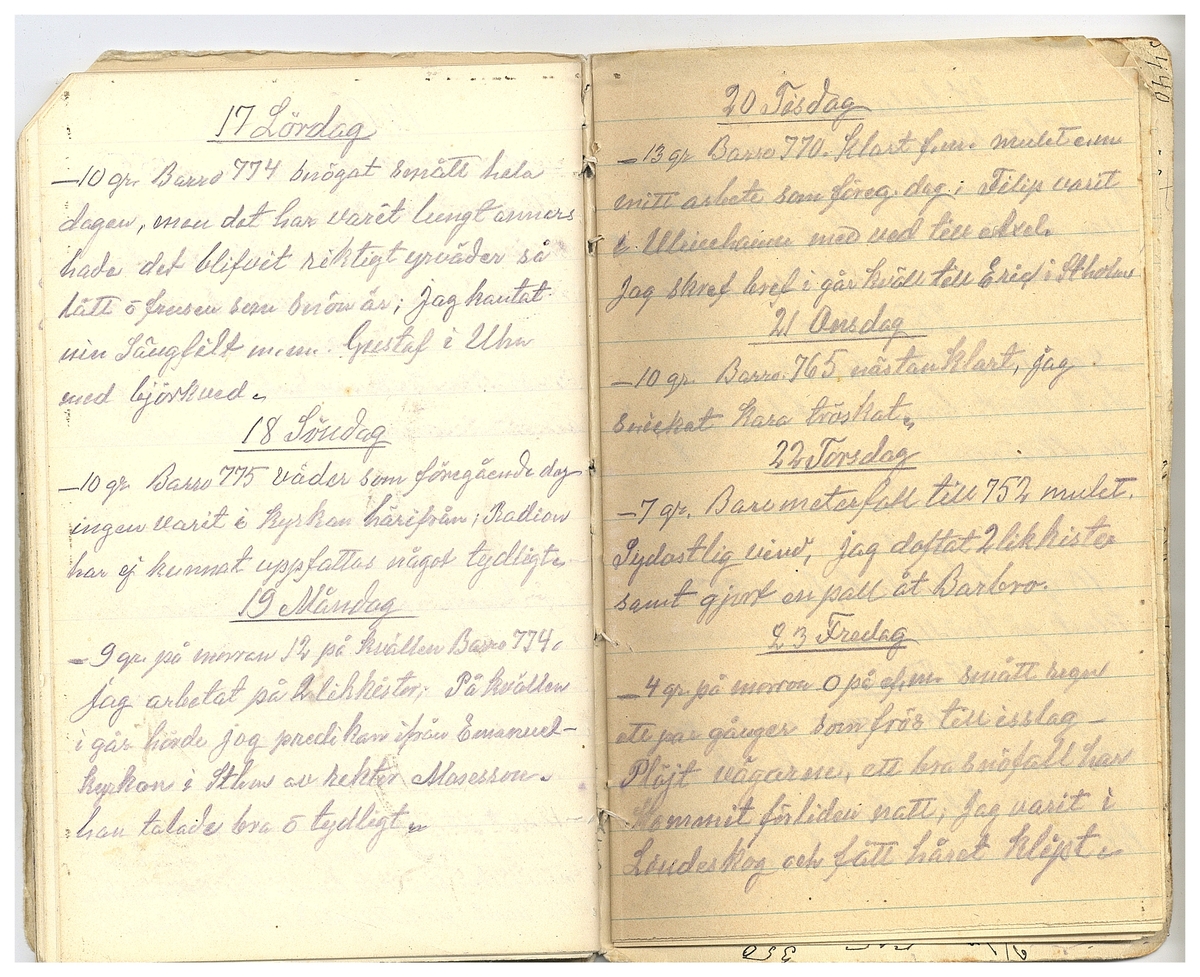 17 Lördag
-10 gr. Barro 774 snögat smått hela
dagen, men det har varit lungt annars
hade det blifvit riktigt yrväder så
lätt o frusen som snön är; Jag kantat
min Sängfilt m.m. Gustaf i Uhn
med björkved.
18 Söndag
-10 gr Barro 775 väder som föregående dag
ingen varit i kyrkan härifrån; Radion
har ej kunnat uppfattas något tydligt.
19 Måndag
-9 gr. på morron 12 på kvällen Barro 774.
Jag arbetat på 2 likkistor; På kvällen
i går hörde jag predikan ifrån Emanuel-
kyrkan i Sthm av rektor Mosesson.
han talade bra o tydligt.
20 Tisdag
-13 gr Barro 770. Klart f.m. mulet e.m
mitt arbete som föreg. dag; Filip varit
i Ulricehamn med ved till Axel.
Jag skref bref i går kväll till Erid i Stholm
21 Onsdag
-10 gr. Barro. 765 nästan klart, jag
snickat Kara tröskat.
22 Torsdag
-7 gr. Barometerfall till 752 mulet.
Sydostlig vind, jag doftat 2 likkistor
samt gjort en pall åt Barbro.
23 Fredag
-4 gr. på morron 0 på ef.m. smått regn
ett par gånger som frös till isslag -
Plöjt vägarne, ett bra snöfall har
kommit förliden natt; Jag varit i
Londeskog och fått håret klipt.
440
350